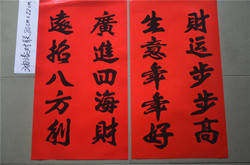 財运步步高
生意年年好
廣進四海財
遠招八方利